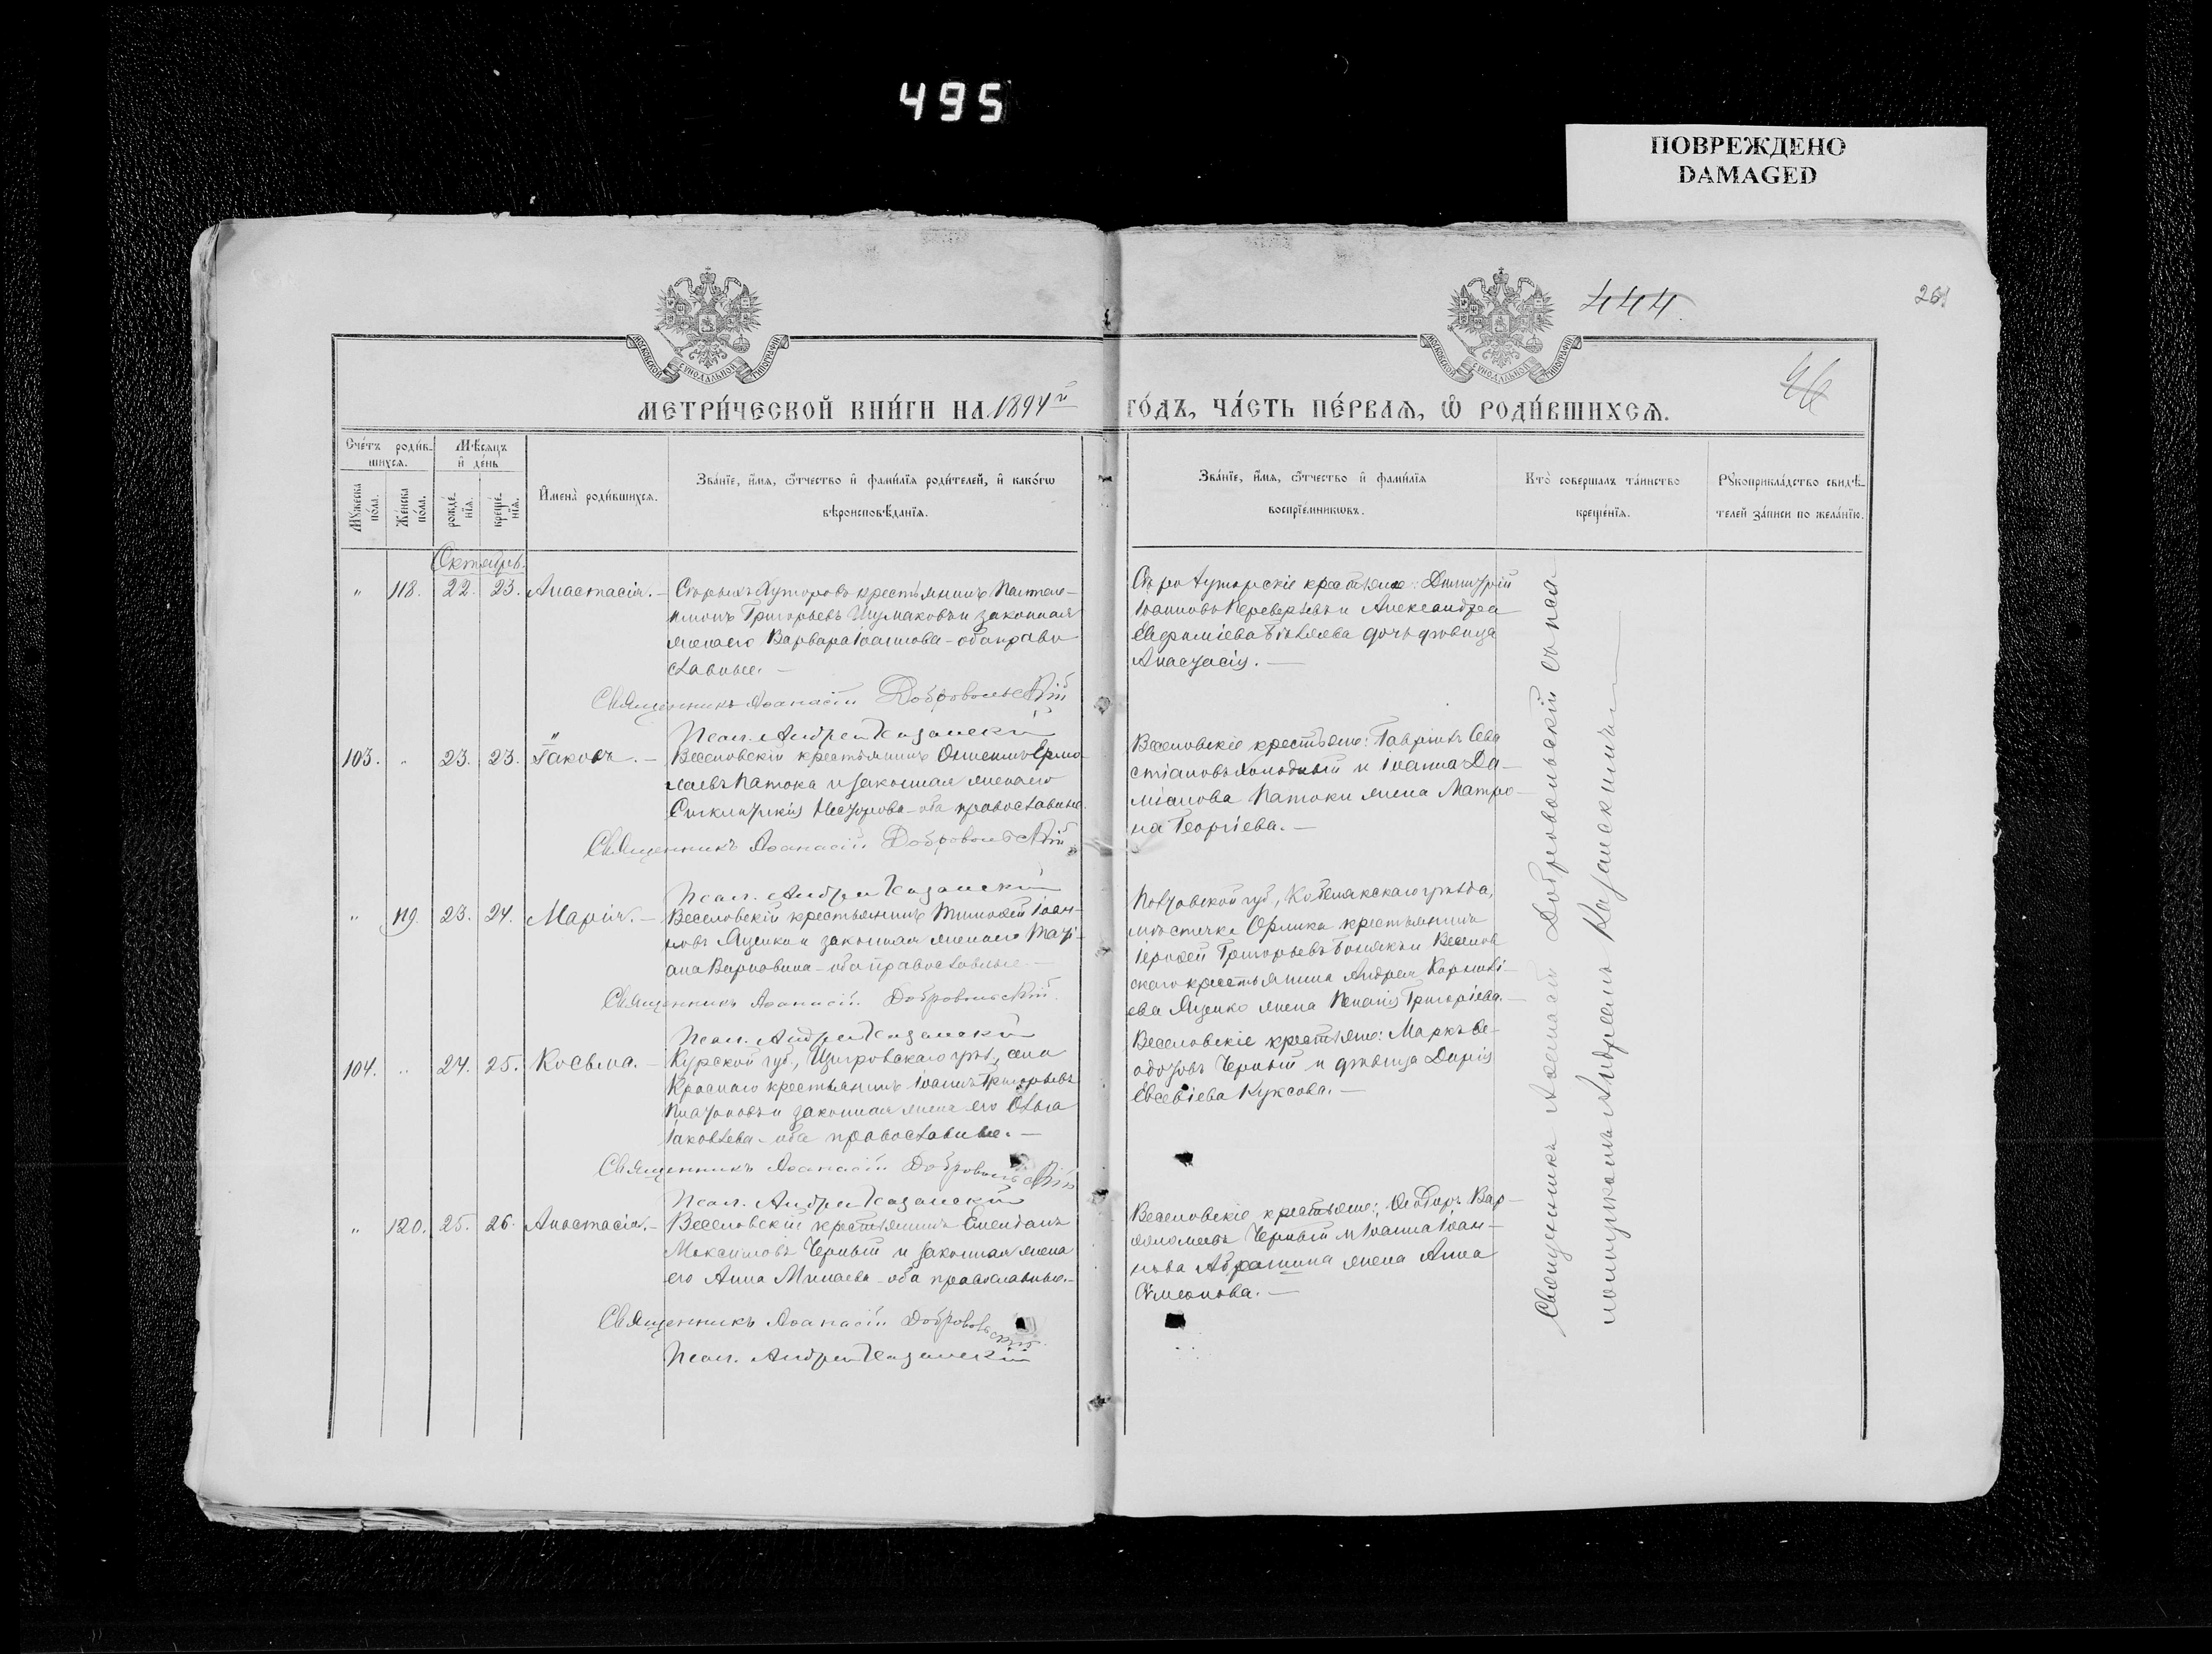 495
ПОВРЕЖДЕНО
DAMAGED
444
261
МОСКОВСКОЙ СѴНОДАЛЬНОЙ ТИПОГРАФІИ
МОСКОВСКОЙ СѴНОДАЛЬНОЙ ТИПОГРАФІИ
МЕТРИ́ЧЕСКОЙ КНИ́ГИ НА 1894й
ГО́ДЪ, ЧА́СТЬ ПЕ́РВАѦ, Ѽ РОДИ́ВШИХСѦ.
Сче́тъ роди́в-
шихсѧ.
Мѣ́сѧцъ
и҆ де́нь
Мꙋ́жеска
по́ла.
Же́нска
по́ла.
рожде́-
нїѧ.
креще́-
нїѧ.
И҆мена̀ роди́вшихсѧ.
Зва́нїе, и҆́мѧ, ѻ҆́тчество и҆ фами́лїѧ роди́телей, и҆ како́гѡ
вѣроисповѣ́данїѧ.
Зва́нїе, и҆́мѧ, ѻ҆́тчество и҆ фами́лїѧ
воспрїе́мникѡвъ.
Кто̀ соверша́лъ та́инство
креще́нїѧ.
Рꙋкоприкла́дство свидѣ́-
телей за́писи по жела́нїю.
Октябрь.
" 118. 22. 23. Анастасія. - Старыхъ Хуторовъ крестьянинъ Пантеле-
имонъ Григорьевъ Шумаковъ и законная
жена его Варвара Іоаннова - оба право
славные. -
Священникъ Аѳанасій Добровольскій
Псал. Андрей Казанскій
Старохуторскіе крестьяне: Димитрій
Іоанновъ Переверзевъ и Александра
Евфиміева дочь дѣвица
Анастасія. -
103. " 23. 23. Іаковъ. - Веселовскій крестьянинъ Онисимъ Ермо
лаевъ Патока и законная жена его
Синклитикія Несторова - оба православные.
Священникъ Аѳанасій Добровольскій
Псал. Андрей Казанскій
Веселовскіе крестьяне: Гавріилъ Сева
стіановъ Холодный и Іоанна Да-
міанова Патоки жена Матро-
на Георгіева. -
" 119. 23. 24. Марія. - Веселовскій крестьянинъ Тимоѳей Іоан-
новъ Яценко и законная жена его Таті-
ана Варновина - оба православные -
Священникъ Аѳанасій Добровольскій
Псал. Андрей Казанскій
Полтавской губ, Кобелякскаго уѣзда,
мѣстечка Орлика крестьянинъ
Іероѳей Григорьевъ и Веселов
скаго крестьянина Андрея Корнилі-
ева Яценко жена Пелагія Григоріева. -
104. " 24. 25. Косьма. - Курской губ., Щигровскаго уѣз., села
Краснаго крестьянинъ Іоаннъ Григорьевъ
Платоновъ и законная жена его Ольга
Іаковлева - оба православные. -
Священникъ Аѳанасій Добровольскій
Псал. Андрей Казанскій
Веселовскіе крестьяне: Маркъ Ѳе-
одотовъ Черный и дѣвица Дарія
Евсевіева Куксова. -
" 120. 25. 26. Анастасія. - Веселовскій крестьянинъ Емеліанъ
Максимовъ Черный и законная жена
его Анна Минаева - оба православные. -
Священникъ Аѳанасій Добровольскій
Псал. Андрей Казанскій
Веселовскіе крестьяне: Ѳеодоръ Вар-
ѳоломеевъ Черный и Іоанна Іоан-
нова Абрашина жена Анна
Сѵмеонова. -
Священникъ Аѳанасій Добровольскій съ пса
ломщикомъ Андреемъ Казанскимъ